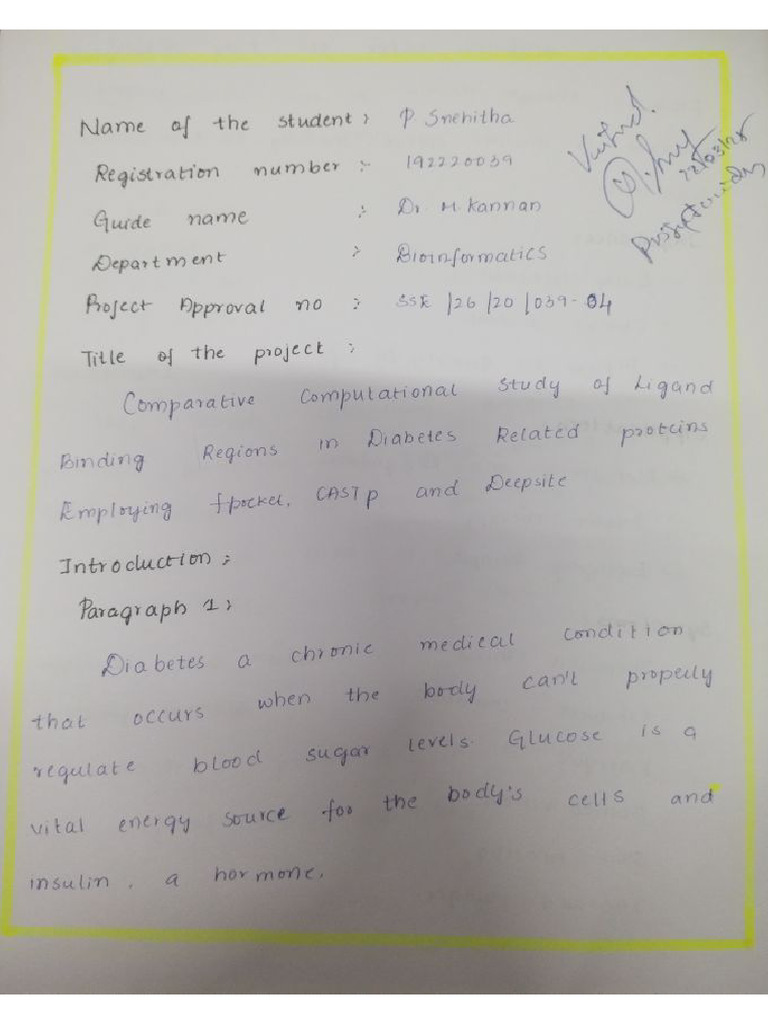 Name of the student : P Snehitha
Registration number :- 192220039
Guide name :- Dr. M. Kannan
Department :- Bioinformatics
Project Approval no : SSE /26 /20 /039-04
Title of the project :
Comparative Computational Study of Ligand
Binding Regions in Diabetes Related proteins
Employing fpocket, CASTp and Deepsite
Introduction :
Paragraph 1 :
Diabetes a chronic medical condition
that occurs when the body can't properly
regulate blood sugar levels. Glucose is a
vital energy source for the body's cells and
insulin, a hormone.